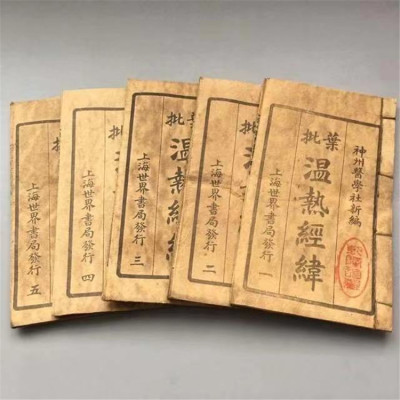 神州醫學社新編
葉批
溫熱經緯
上海世界書局發行 一
批
上海世界書局發行 二
批
溫熱經緯
上海世界書局發行 三
批
上海世界書局發行 四
上海世界書局發行 五